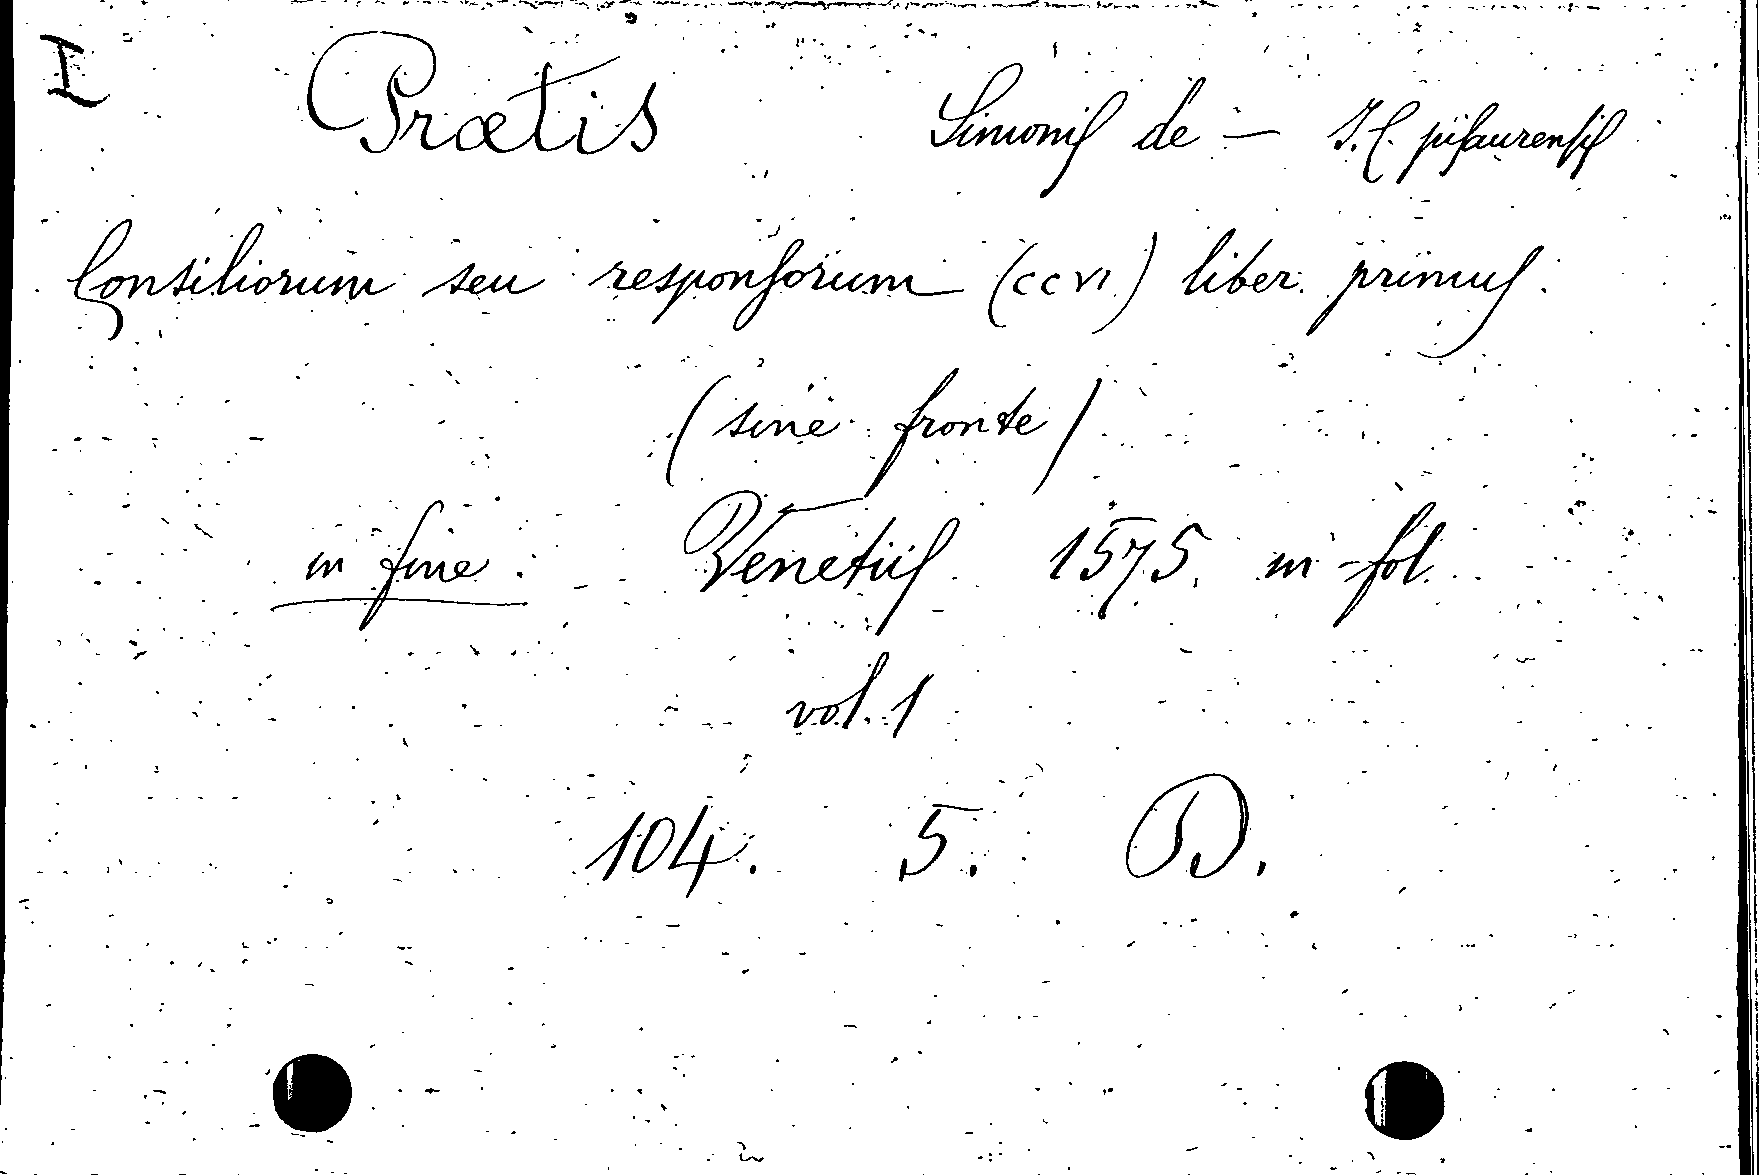 I Prætis Simonis de — J. C. pisaurensis
Consiliorum seu responsorum (CCVI) liber primus.
(sine fronte)
in fine: Venetiis 1575. in-fol.
vol. 1
104. 5. D.